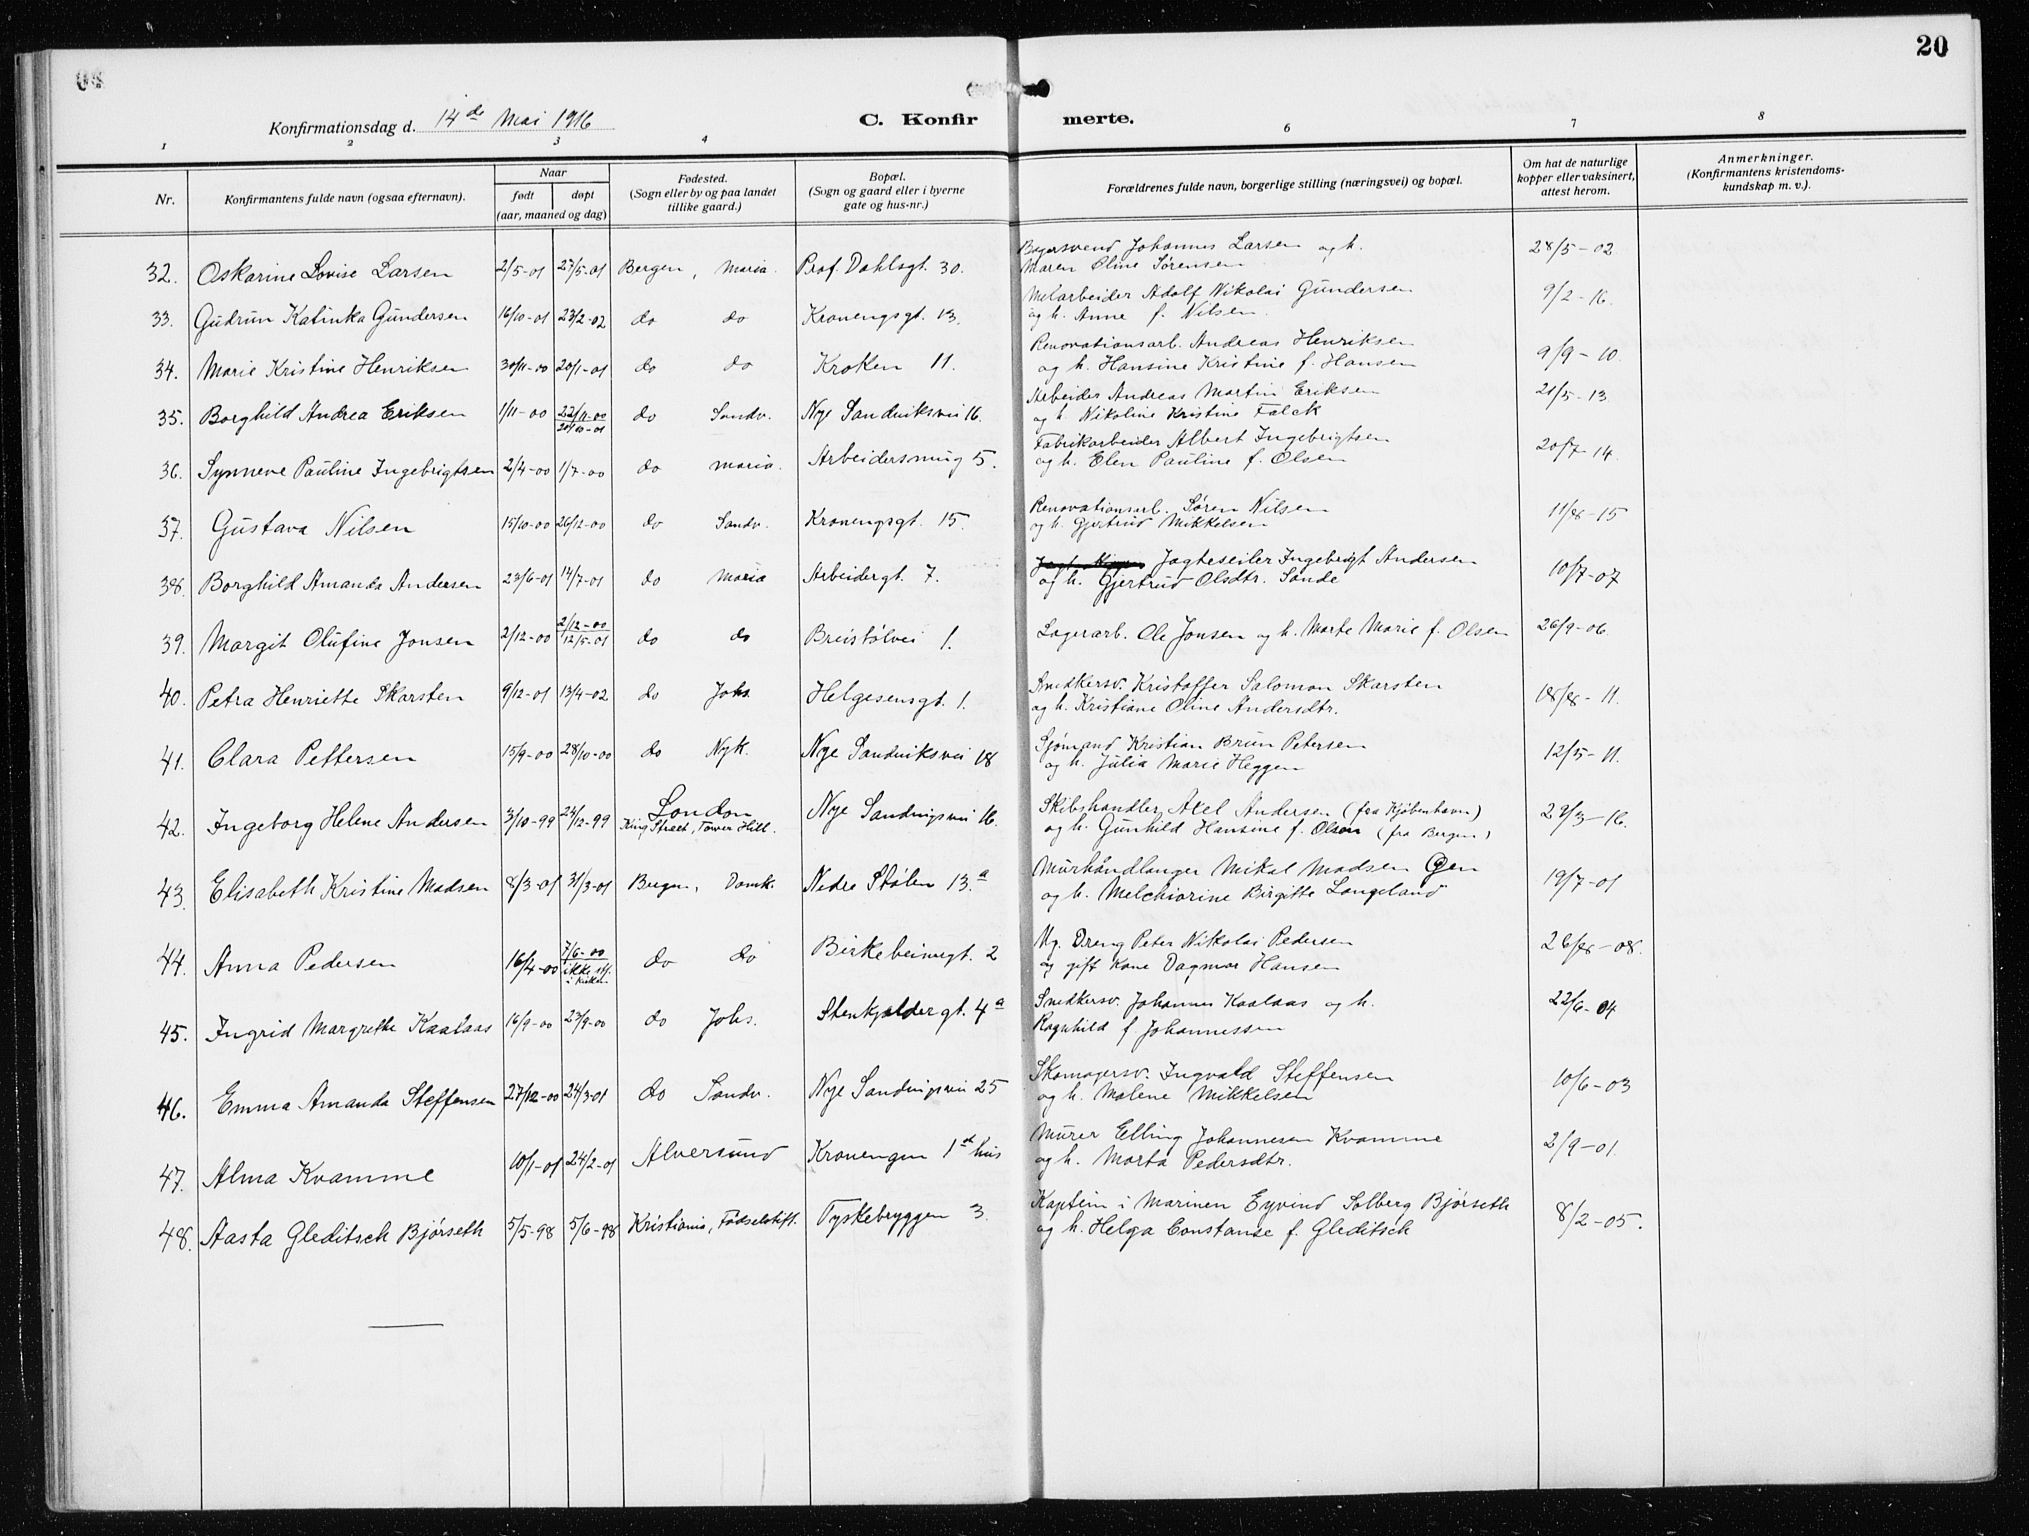 20
Konfirmationsdag d. 14de Mai 1916
C. Konfirmerte.
1 2 3 4 6 7 8
Nr. Konfirmantens fulde navn (ogsaa efternavn). Naar født døpt (aar, maaned og dag) Fødested. (Sogn eller by og paa landet tillike gaard.) Bopæl. (Sogn og gaard eller i byerne gate og hus-nr.) Forældrenes fulde navn, borgerlige stilling (næringsvei) og bopæl. Om hat de naturlige kopper eller vaksinert, attest herom. Anmerkninger. (Konfirmantens kristendomskundskap m. v.).
32. Oskarine Lovise Larsen 2/5-01 27/5-01 Bergen, Maria. Prof. Dahlsgt. 30. Bagersvend Johannes Larsen og h. 28/5-02
Maren Oline Sørensen
33. Gudrun Katinka Gundersen 16/10-01 23/2-02 do do Kronengsgt. 13. Melarbeider Adolf Nikolai Gundersen 9/2-16.
og h. Anne f. Nilsen.
34. Marie Kristine Henriksen 30/11-00 20/1-01 do do Kroken 11. Renovationsarb. Andreas Henriksen 9/9-10.
og h. Hansine Kristine f. Hansen
35. Borghild Andrea Eriksen 1/11-00 22/11-00 20/10-01 do Sandv. Nye Sandviksvei 16. Arbeider Andreas Martin Eriksen 21/5-13.
og h. Nikoline Kristine Falck
36. Synneve Pauline Ingebrigtsen 2/4-00 1/7-00 do Maria. Arbeidersmug 5. Fabrikarbeider Albert Ingebrigtsen 20/7-14.
og h. Elen Pauline f. Olsen
37. Gustava Nilsen 15/10-00 26/12-00 do Sandv. Kronengsgt. 15. Renovationsarb. Søren Nilsen 11/8-15
og h. Gjertrud Mikkelsen
38. Borghild Amanda Andersen 23/6-01 14/7-01 do Maria Arbeidergt. 7. Jagteseiler Ingebrigt Andersen 10/7-07
og h. Gjertrud Olsdtr. Sande
39. Margit Olufine Jonsen 2/12-00 2/12-00 12/5-01 do do Breistølvei 1. Lagerarb. Ole Jonsen og h. Marte Marie f. Olsen 26/9-06.
40. Petra Henriette Skarsten 9/12-01 13/4-02 do Johs. Helgesensgt. 1. Snedkersv. Kristoffer Salomon Skarsten 18/8-11.
og h. Kristiane Oline Andersdtr.
41. Clara Pettersen 15/9-00 28/10-00 do Nyk. Nye Sandviksvei 18 Sjømand Kristian Brun Petersen 12/5-11.
og h. Julia Marie Heggen
42. Ingeborg Helene Andersen 3/10-99 24/12-99 London King Street, Tower Hill. Nye Sandvigsvei 16. Skibshandler Axel Andersen (fra Kjøbenhavn) 29/3-16.
og h. Gunhild Hansine f. Olsen (fra Bergen)
43. Elisabeth Kristine Madsen 8/3-01 31/3-01 Bergen, Domk. Nedre Stølen 13.a Murhåndlanger Mikal Madsen Øen 19/7-01
og h. Melchiorine Birgitte Langeland
44. Anna Pedersen 16/4-00 7/6-00 ikke stf. i kirken do do Birkebeinergt. 2 Ug. Dreng Peter Nikolai Pedersen 26/8-08.
og gift Kone Dagmar Hansen
45. Ingrid Margrethe Kaalaas 16/9-00 23/9-00 do Johs. Stenkjeldergt. 4a Snedkersv. Johannes Kaalaas og h. 22/6-04
Ragnhild f. Johannessen
46. Emma Amanda Steffensen 27/12-00 24/3-01 do Sandv. Nye Sandvigsvei 25 Skomagersv. Ingvald Steffensen 10/6-03
og h. Malene Mikkelsen
47. Alma Kvamme 10/1-01 24/2-01 Alversund Kronengen 1ste hus Murer Elling Johannesen Kvamme 2/9-01.
og h. Marta Pedersdtr.
48. Aasta Gleditsch Bjørseth 5/5-98 5/6-98 Kristiania, Fødselstift. Tyskebryggen 3. Kaptein i Marinen Eyvind Solberg Bjørseth 8/2-05.
og h. Helga Constanse f. Gleditsch